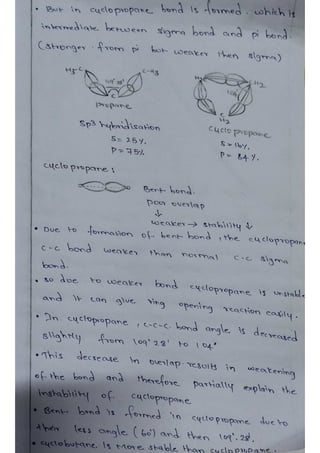 • But in cyclopropane bond is formed. which is
intermediate between sigma bond and pi bond.
(stronger from pi but weaker then sigma)
H3-C C-H3
109°28'
C
propane
H2 H2
C
H2
cyclo propane
Sp3 hybridisation
S= 25%
P= 75%
S= 16%
P= 84%.
cyclo propane:
Bent bond.
poor overlap
↓
weaker → stability ↓
• Due to formation of bent bond, the cyclopropan
c-c bond weaker than normal c-c sigma
bond.
• so due to weaker bond cyclopropane is unstable
and it can give ring opening reaction easily.
• In cyclopropane, c-c-c bond angle is decreased
slightly from 109°28' to 104°
• This decrease in overlap results in weakening
of the bond and therefore partially explain the
instability of cyclopropane
• Bent bond is formed in cyclopropane due to
then less angle (60°) and then 109°.28'.
• cyclobutane is more stable than cyclopropane.